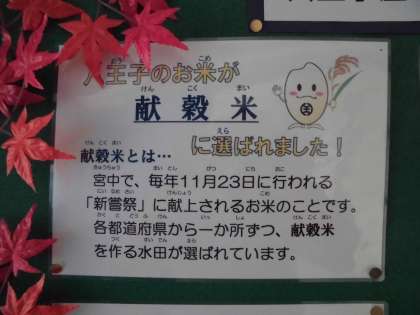 八王子のお米が
献穀米
に選ばれました！
献穀米とは…
宮中で、毎年11月23日に行われる
「新嘗祭」に献上されるお米のことです。
各都道府県から一か所ずつ、献穀米
を作る水田が選ばれています。